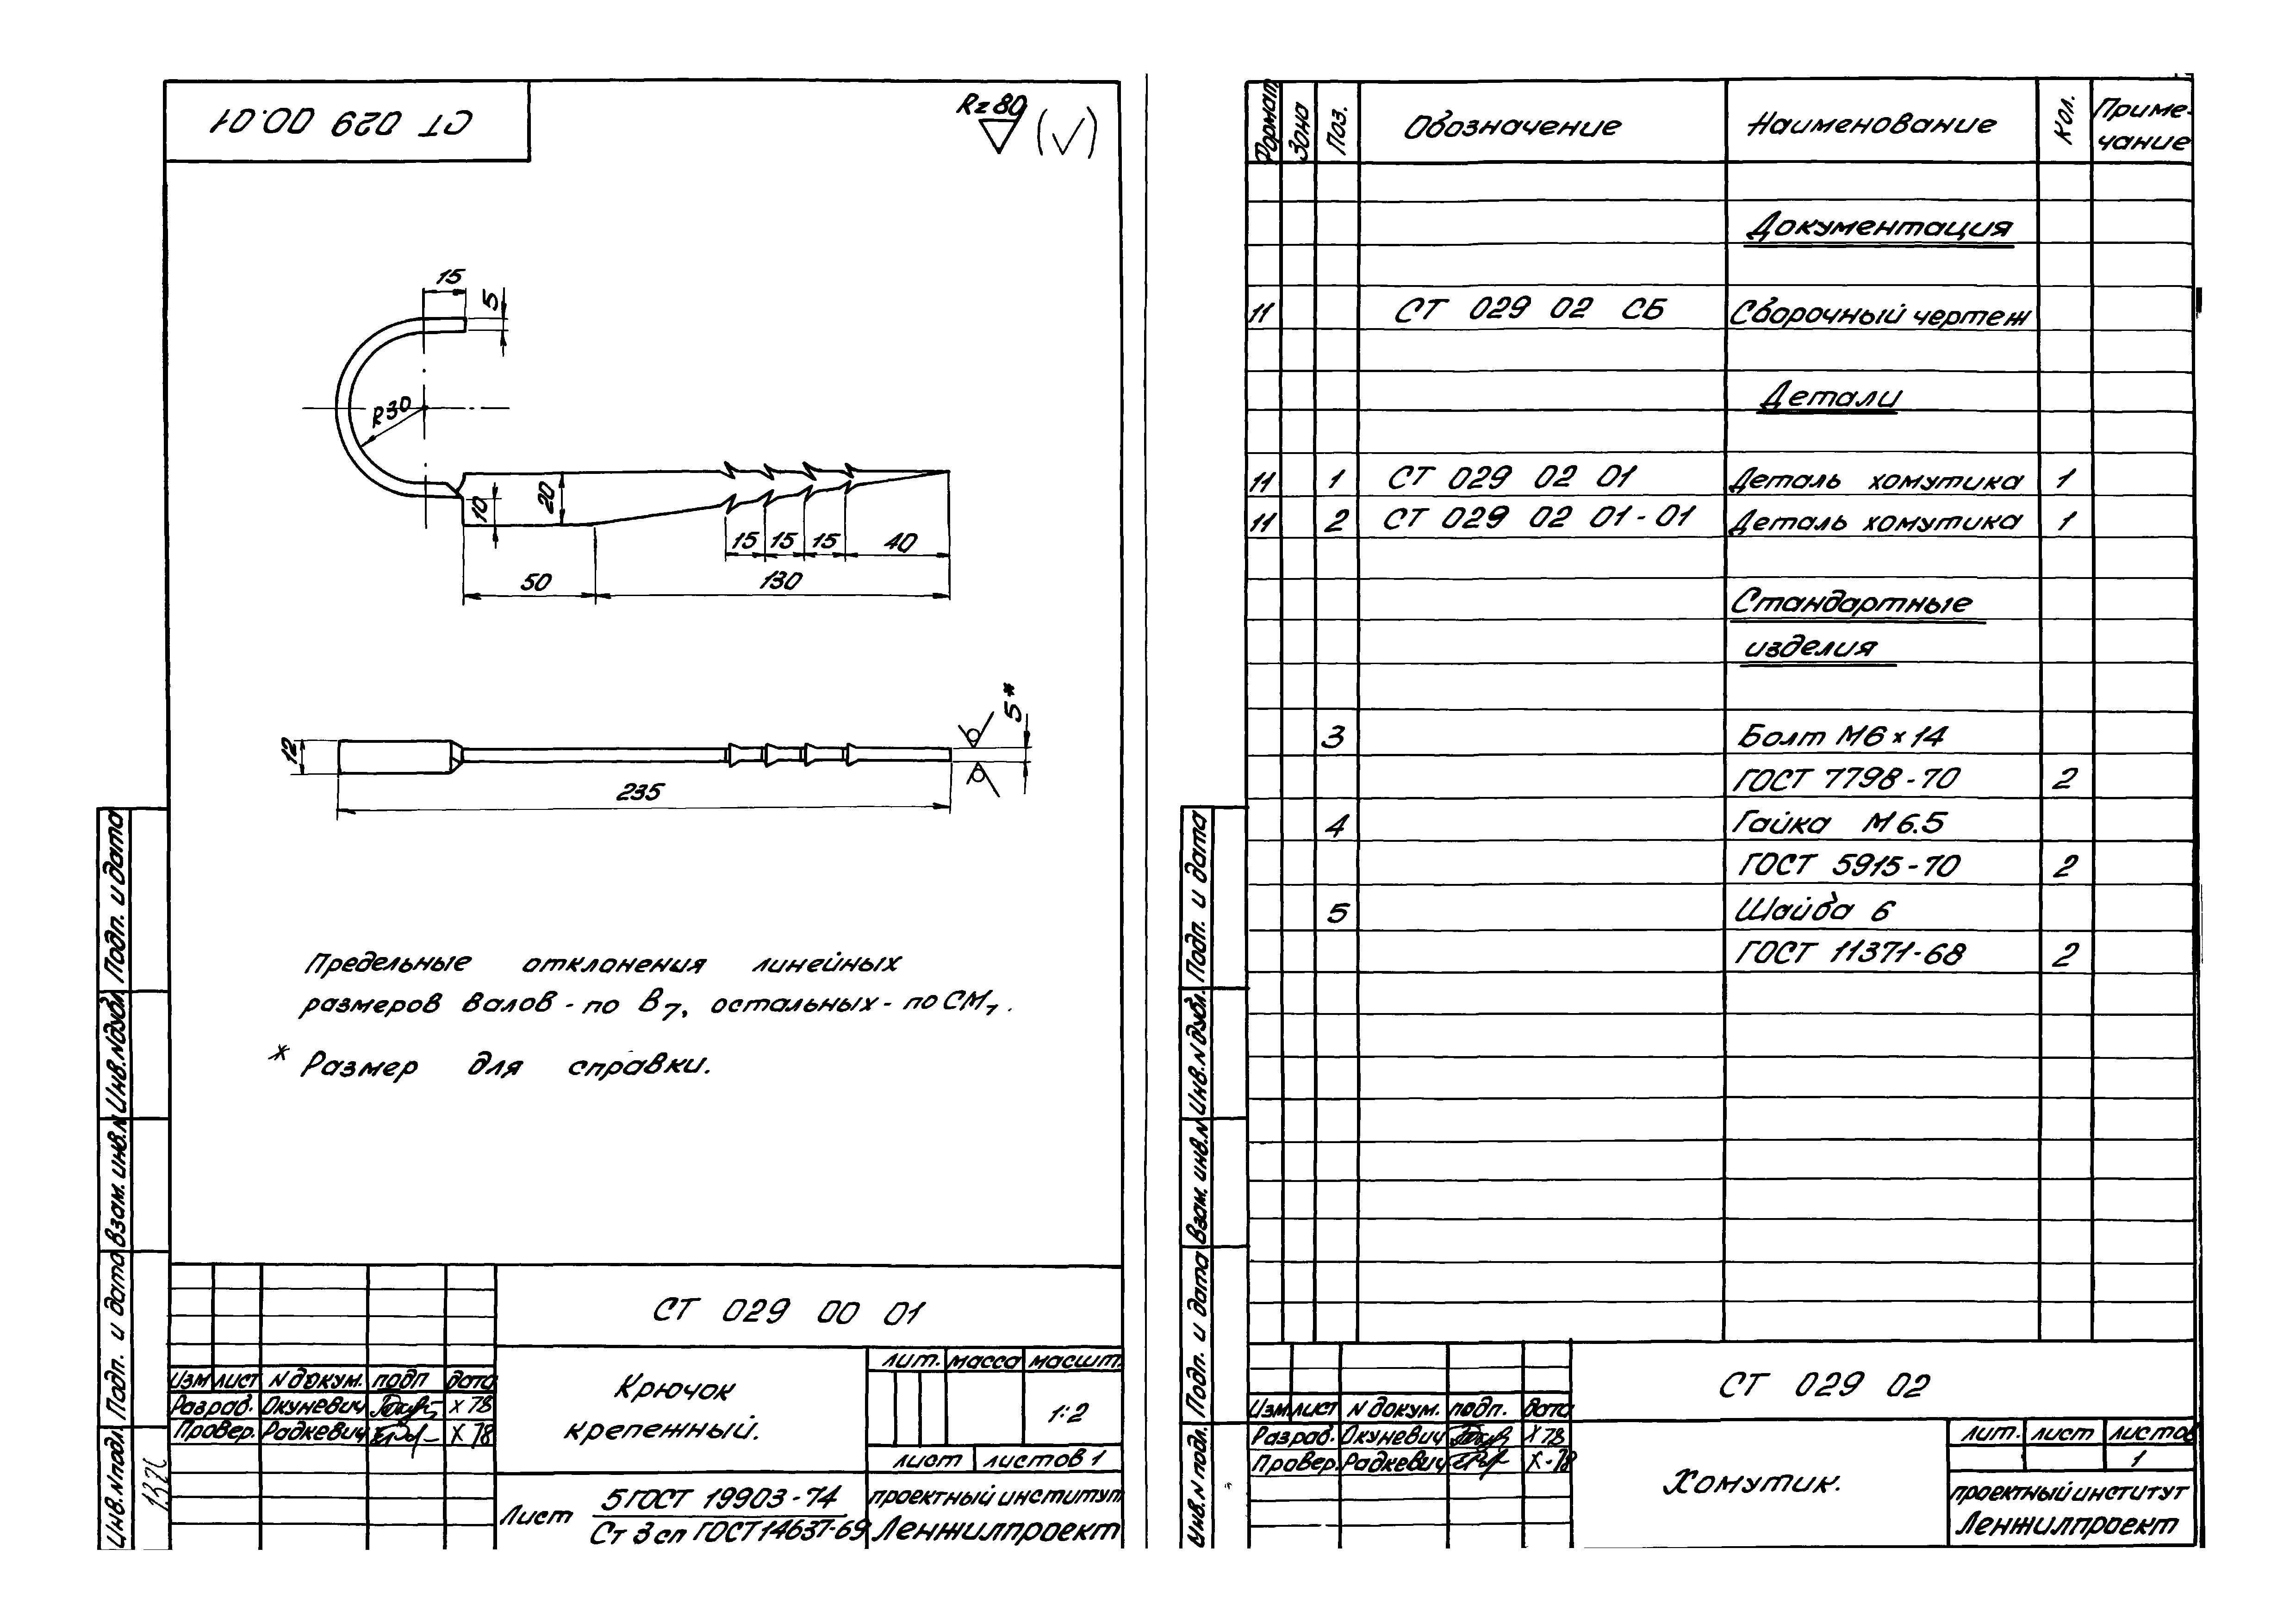 СТ 029 00.01
Rz80 (√)
15
5
R30
10
20
15 15 15 40
50 130
12
5*
235
Предельные отклонения линейных
размеров валов - по В7, остальных - по СМ7.
* Размер для справки.
Подп. и дата
Инв.N дубл.
Взам. инв.N
Подп. и дата
Инв.N подл.
СТ 029 00 01
Изм лист N докум. подп дата
Разраб. Окуневич X 78
Провер. Радкевич X 78
Крючок
крепежный.
лит. масса масшт.
1:2
лист листов 1
Лист 5 ГОСТ 19903-74
Ст 3 сп ГОСТ 14637-69
проектный институт
Ленжилпроект
Формат Зона Поз. Обозначение Наименование Кол. Приме-
чание
Документация
11 СТ 029 02 СБ Сборочный чертеж
Детали
11 1 СТ 029 02 01 Деталь хомутика 1
11 2 СТ 029 02 01-01 Деталь хомутика 1
Стандартные
изделия
3 Болт М6×14
ГОСТ 7798-70 2
4 Гайка М6.5
ГОСТ 5915-70 2
5 Шайба 6
ГОСТ 11371-68 2
Подп. и дата
Инв.N дубл.
Взам. инв.N
Подп. и дата
Инв.N подл.
СТ 029 02
Изм лист N докум. подп. дата
Разраб. Окуневич X 78
Провер. Радкевич X-78
Хомутик.
лит. лист листов
1
проектный институт
Ленжилпроект